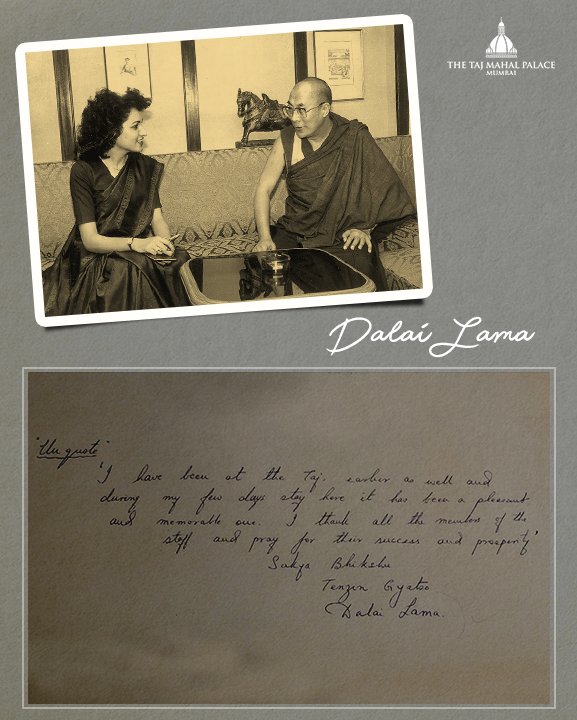 THE TAJ MAHAL PALACE
MUMBAI
Dalai Lama
"Un quote"
'I have been at the Taj, earlier as well and
during my few days stay here it has been a pleasant
and memorable one. I thank all the members of the
staff and pray for their success and prosperity'
Sakya Bhikshu
Tenzin Gyatso
Dalai Lama.